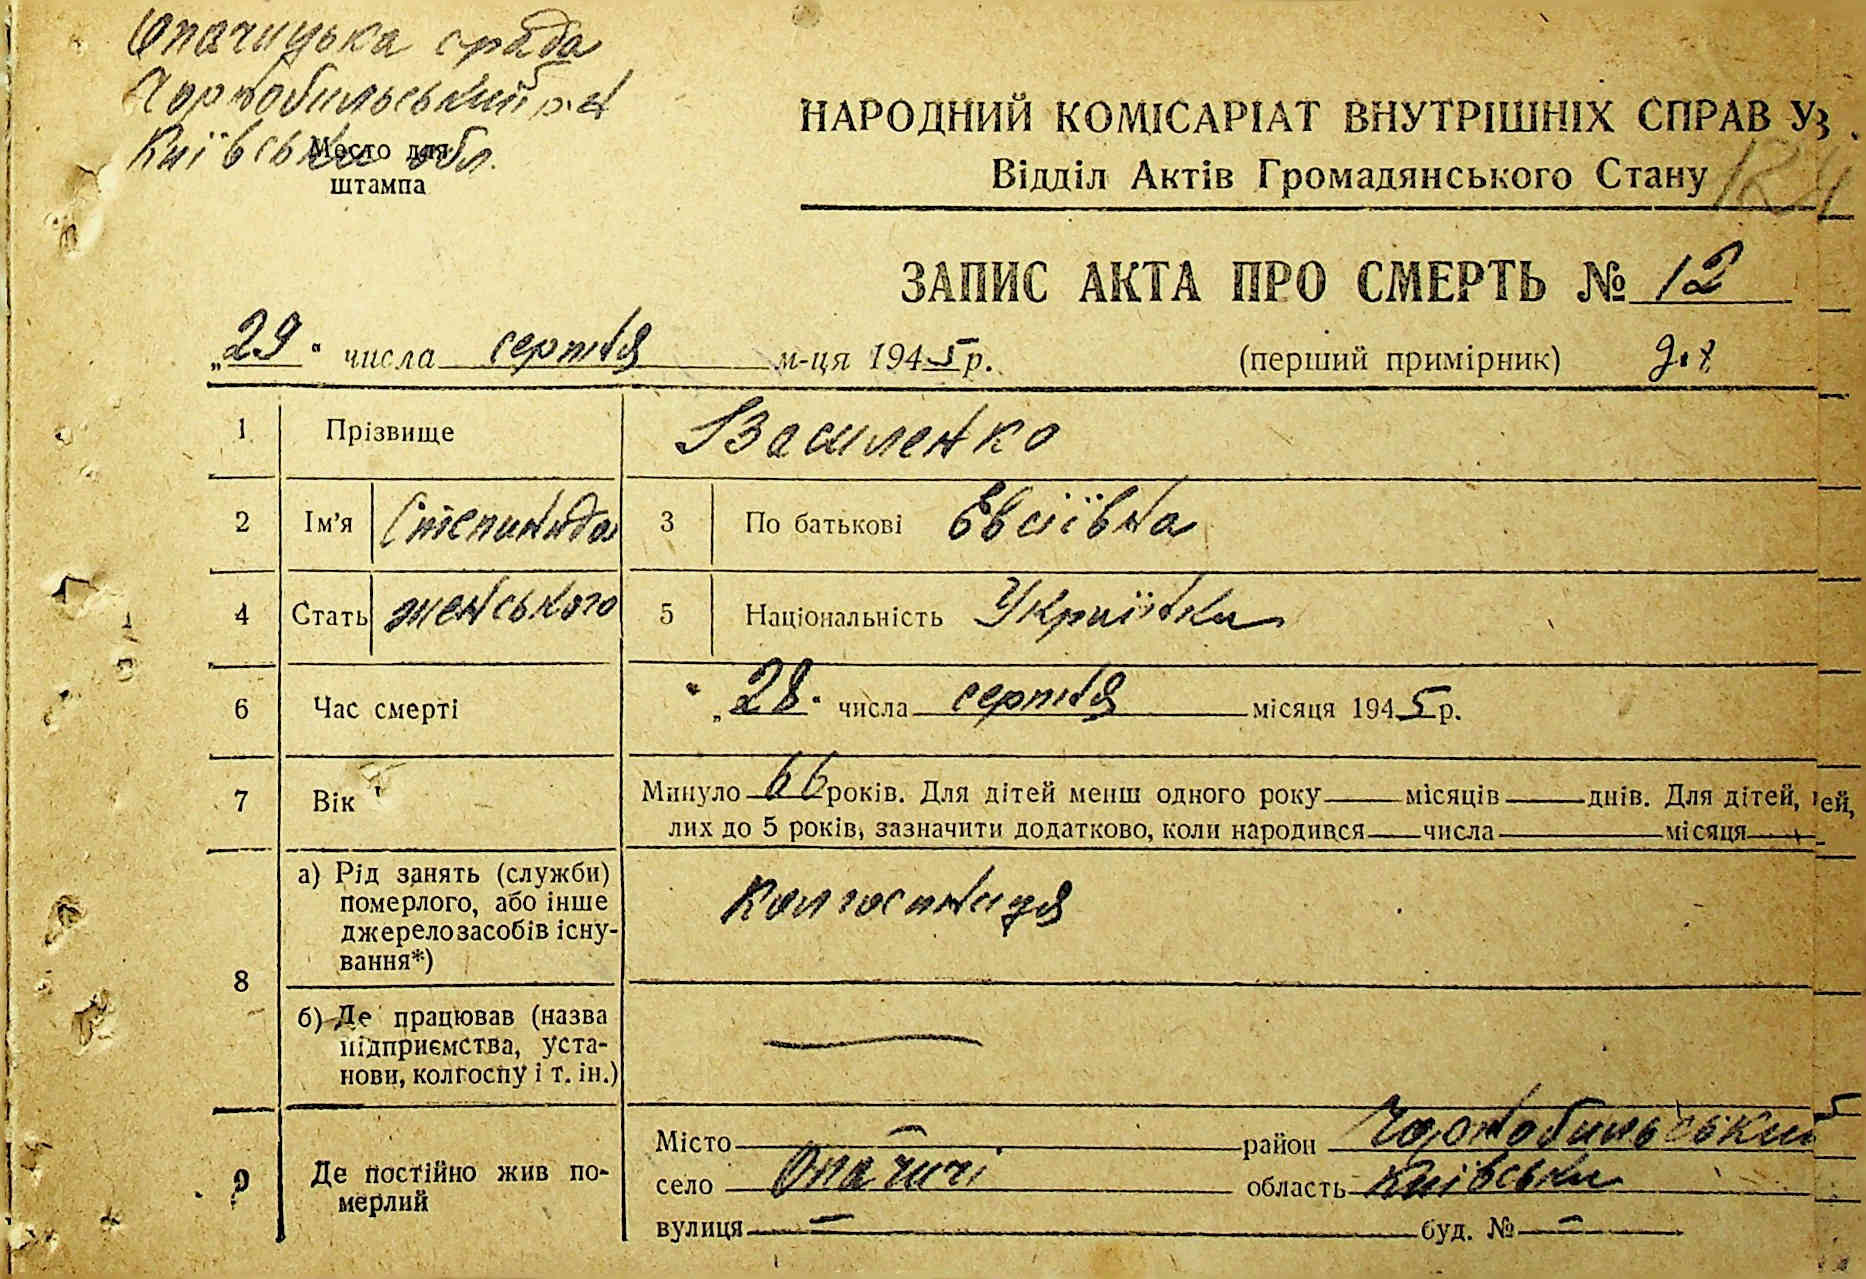 Опачицька с рада
Чорнобильський р-н
Київська обл.
Место для
штампа
НАРОДНИЙ КОМІСАРІАТ ВНУТРІШНІХ СПРАВ У
Відділ Актів Громадянського Стану
ЗАПИС АКТА ПРО СМЕРТЬ № 12
„29" числа серпня м-ця 1945 р. (перший примірник)
1 Прізвище Василенко
2 Ім'я Степанида 3 По батькові Євсіївна
4 Стать женського 5 Національність Українка
6 Час смерті „28" числа серпня місяця 1945 р.
7 Вік Минуло 66 років. Для дітей менш одного року — місяців — днів. Для дітей, ей,
лих до 5 років, зазначити додатково, коли народився — числа — місяця —
8 а) Рід занять (служби)
померлого, або інше
джерело засобів існу-
вання*) Колгоспниця
б) Де працював (назва
підприємства, уста-
нови, колгоспу і т. ін.) —
9 Де постійно жив по-
мерлий
Місто — район Чорнобильський
село Опачичі область Київська
вулиця — буд. № —